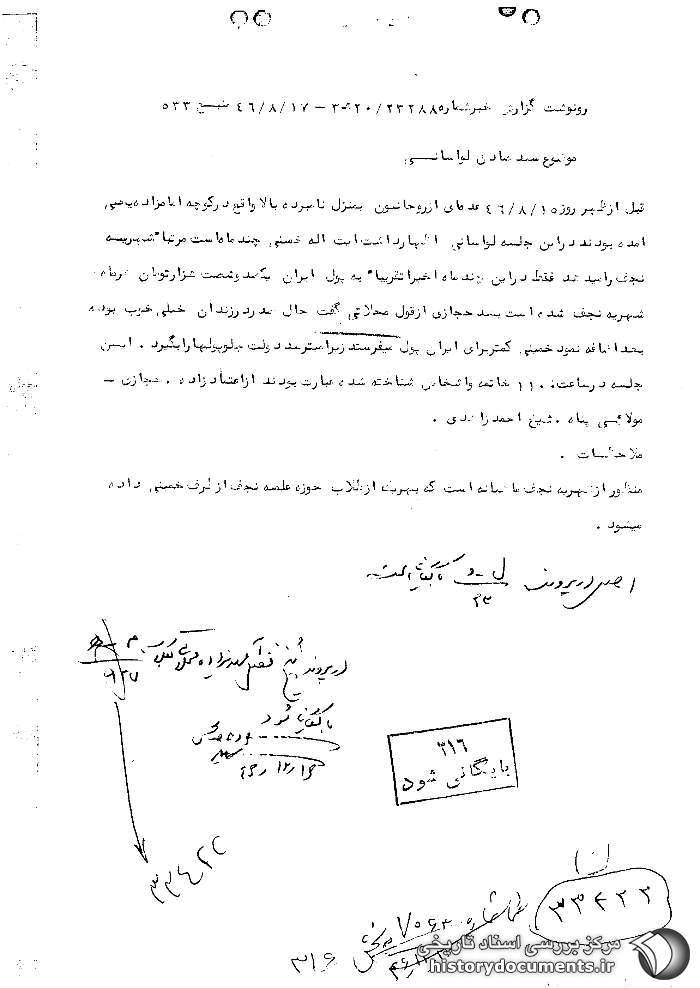 رونوشت گزارش خبر شماره ۲۳۲۸۸/۲۰ه۳ – ۴۶/۸/۱۷ منبع ۵۳۳
موضوع سید صادق لواسانی
قبل از ظهر روز ۴۶/۸/۱۵ عده‌ای از روحانیون بمنزل نامبرده بالا واقع در کوچه امامزاده یحیی
آمده بودند در این جلسه لواسانی اظهار داشت آیت اله خمینی چند ماه است مرتباً شهریه
نجف را میدهد فقط در این چند ماه اخیر تقریباً به پول ایران یکصد و شصت هزار تومان هر ماه
شهریه نجف شده است بعد حجازی از قول محلاتی گفت حال در زندان خیلی خوب بوده
بعد اضافه نمود خمینی کمتر برای ایران پول میفرستد زیرا میترسد دولت جلو پولها را بگیرد . این
جلسه در ساعت ۱۱۰ خاتمه و اشخاص شناخته شده عبارت بودند از اعتمادزاده . حجازی –
مولائی پناه . شیخ احمد
ملاحظات .
منظور از شهریه نجف ماهیانه است که بهریک از طلاب حوزه علمیه نجف از طرف خمینی داده
میشود .
اصل در پرونده ل – و بایگانی است
۲۳
در پرونده شیخ فضل اله محلاتی م –
۹۲۷
بایگانی شود
۴۶/۱۲/۱۶
۳۱۶
بایگانی شود
۳۳۴۲۲
۳۳۴۲۲
شماره ۷۰۶۳ بخش ۳۱۶
مرکز بررسی اسناد تاریخی
historydocuments.ir